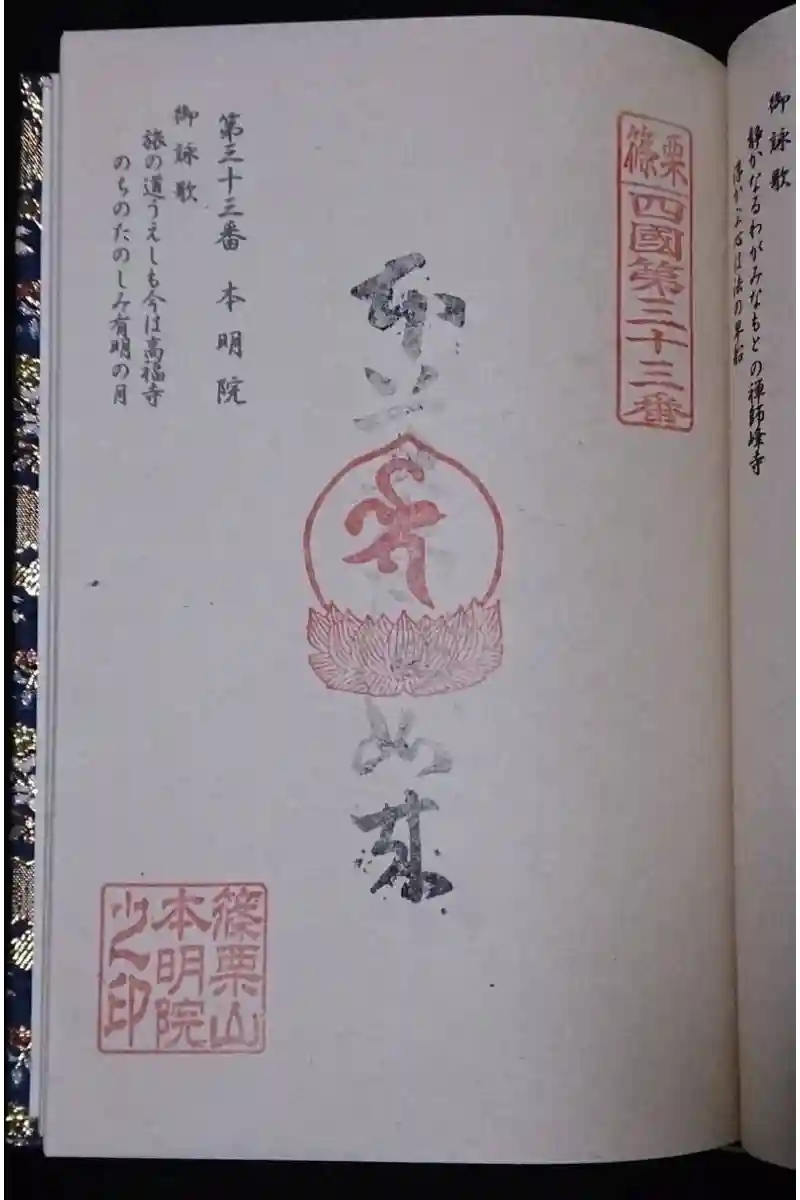 御詠歌
静かなるわがみなもとの禅師峰寺
篠栗
四國第三十三番
本
如
来
第三十三番 本明院
御詠歌
旅の道うえしも今は高福寺
のちのたのしみ有明の月
篠栗山
本明院
之印